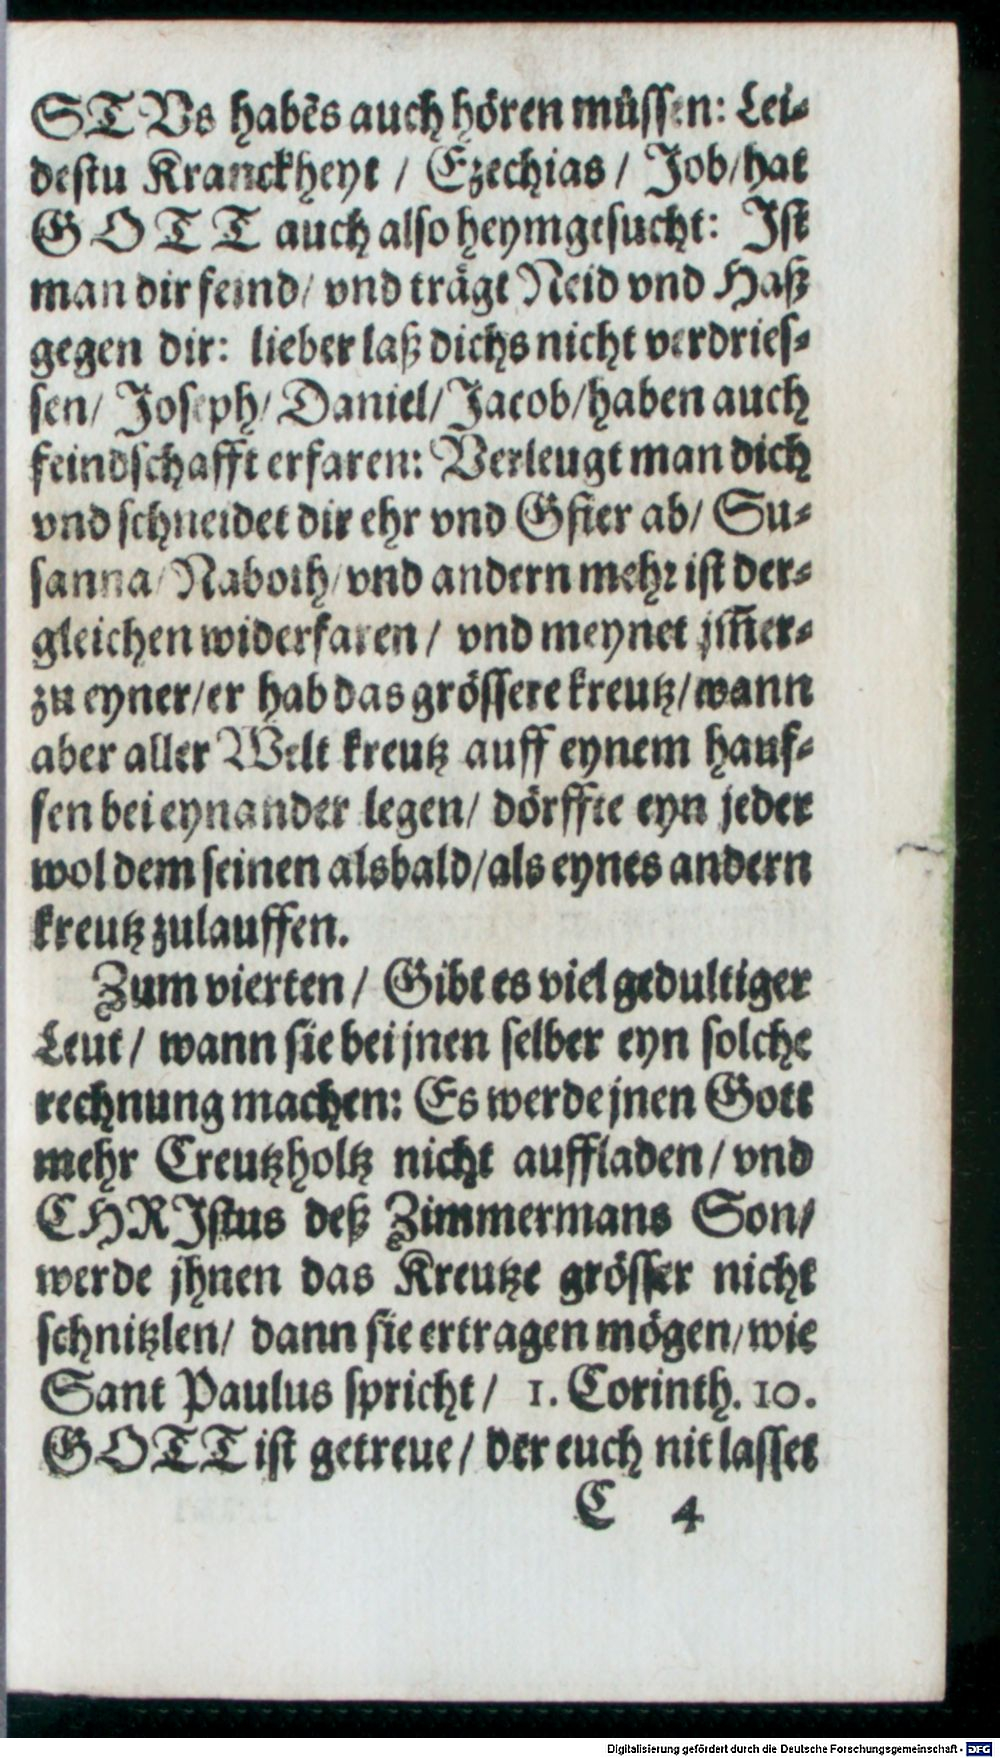 STVs habēs auch hören müssen: Lei-
destu Kranckheyt / Ezechias / Job / hat
GOTT auch also heymgesucht: Ist
man dir feind / vnd trägt Neid vnd Haß
gegen dir: lieber laß dichs nicht verdries-
sen / Joseph / Daniel / Jacob / haben auch
feindschafft erfaren: Verleugt man dich
vnd schneidet dir ehr vnd Gfier ab / Su-
sanna / Naboth / vnd andern mehr ist der-
gleichen widerfaren / vnd meynet jm̄er-
zu eyner / er hab das grössere kreutz / wann
aber aller Welt kreutz auff eynem hauf-
fen bei eynander legen / dörffte eyn jeder
wol dem seinen alsbald / als eynes andern
kreutz zulauffen.
Zum vierten / Gibt es viel gedultiger
Leut / wann sie bei jnen selber eyn solche
rechnung machen: Es werde jnen Gott
mehr Creutzholtz nicht auffladen / vnd
CHRIstus deß Zimmermans Son /
werde jhnen das Kreutze grösser nicht
schnitzlen / dann sie ertragen mögen / wie
Sant Paulus spricht / 1. Corinth. 10.
GOTT ist getreue / der euch nit lasset
C 4
Digitalisierung gefördert durch die Deutsche Forschungsgemeinschaft - DFG